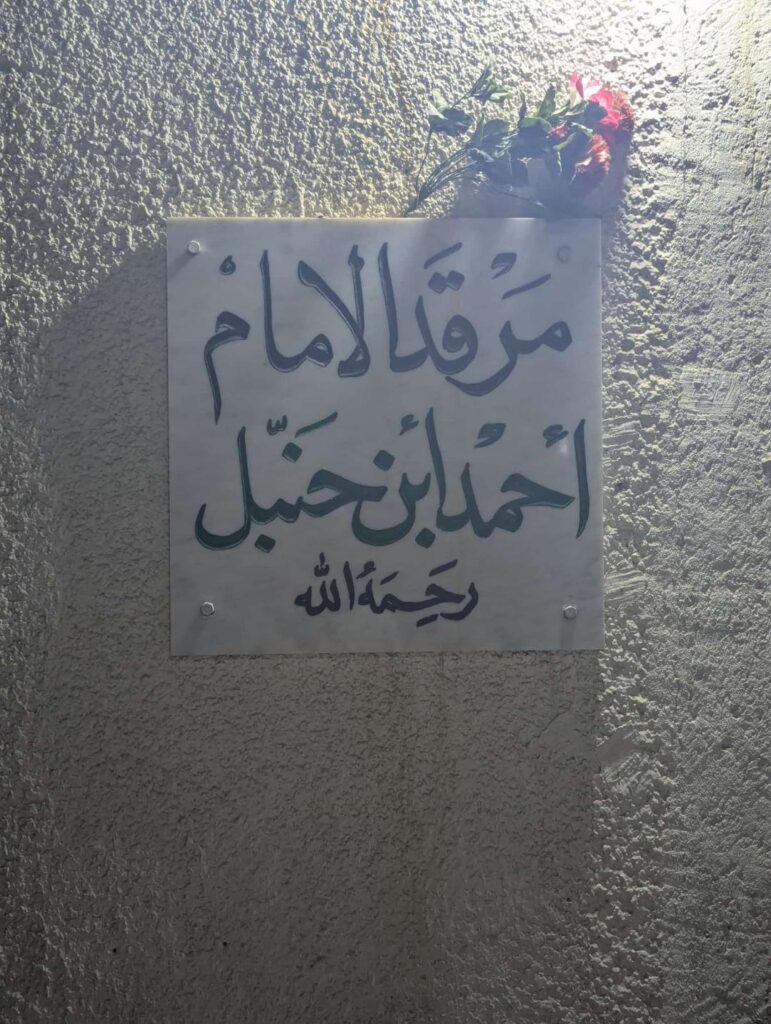 مَرْقَدَ الامامْ
أحمْد أبن حنَبّل
رَحِمَهُ الله